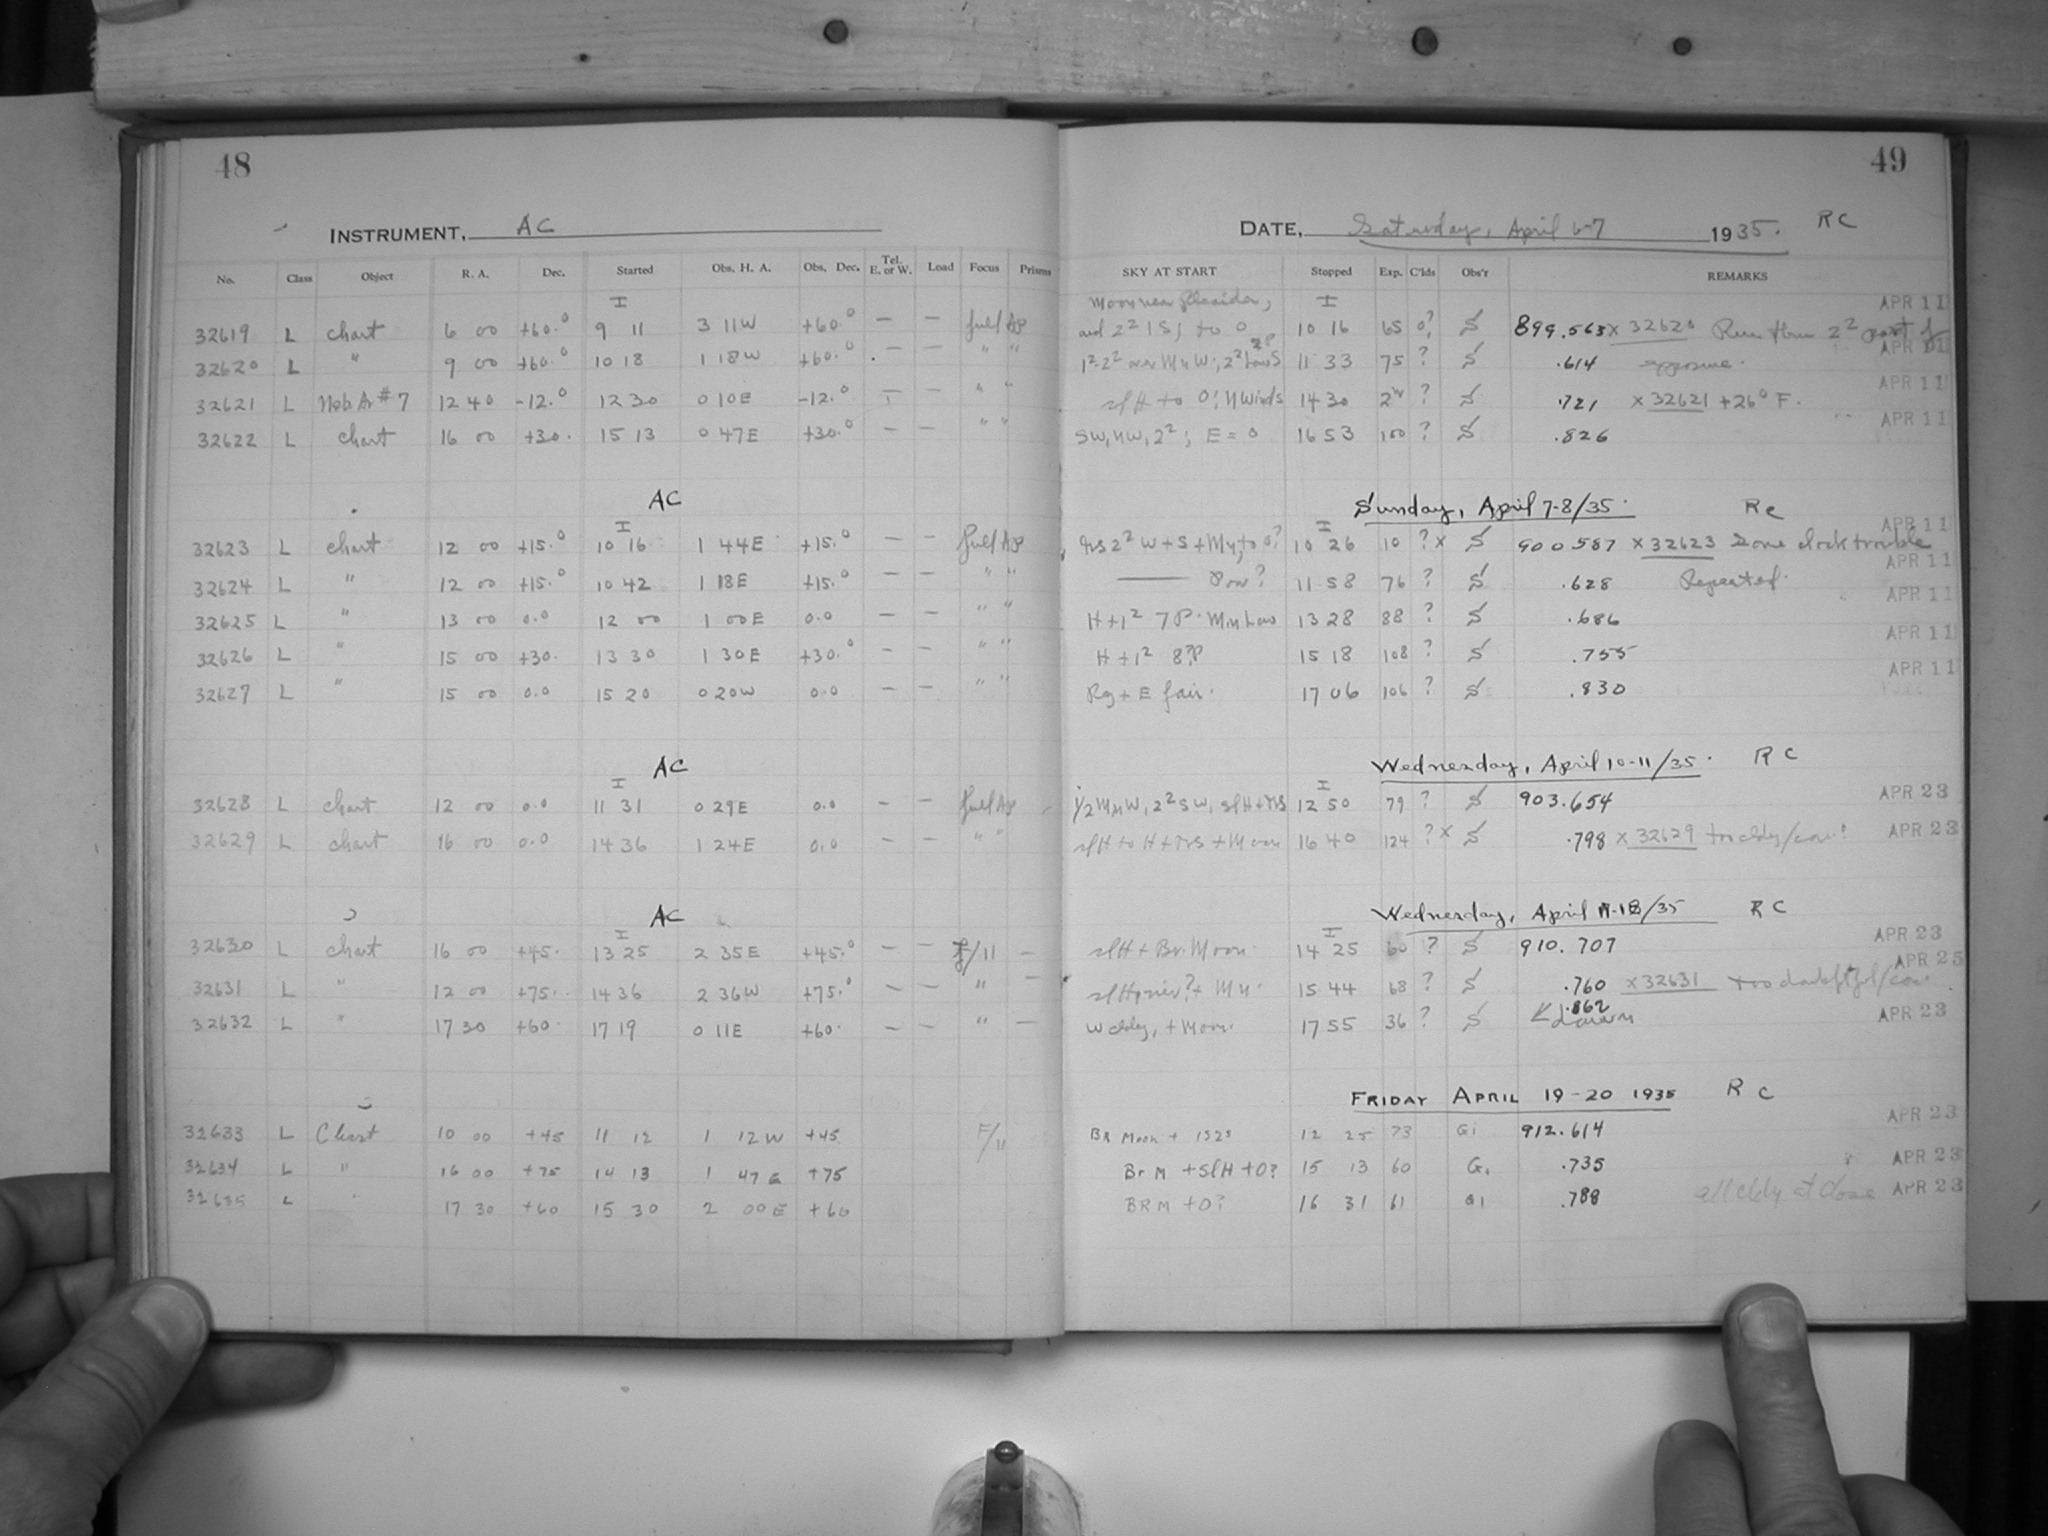 48
49
INSTRUMENT, AC
DATE, Saturday, April 6-7 1935. RC
No. Class Object R. A. Dec. Started Obs. H. A. Obs. Dec. Tel. E. or W. Load Focus Prisms SKY AT START Stopped Exp. C'lds Obs'r REMARKS
I Moon near I APR 11
32619 L chart 6 00 +60.° 9 11 3 11W +60.° — — full Ap and 2² 1S; to 0 10 16 65 0? S 899.563 × 32620 Run thru 2² part of
32620 L " 9 00 +60.° 10 18 1 18W +60.° — — " " 11 33 75 ? S .614 exposure. APR 11
32621 L Neb Ar # 7 12 40 -12.° 12 30 0 10E -12.° — — " " slH to 0; N Winds 14 30 ? S .721 × 32621 +26° F. APR 11
32622 L chart 16 00 +30. 15 13 0 47E +30.° — — " " SW, NW, 2²; E = 0 16 53 100 ? S .826 APR 11
AC Sunday, April 7-8/35. RC
I I APR 11
32623 L chart 12 00 +15.° 10 16 1 44E +15.° — — full Ap 2² W + S + My, to 0? 10 26 10 ? × S 900 587 × 32623 Some clock trouble
32624 L " 12 00 +15.° 10 42 1 18E +15.° — — " " — 11 58 76 ? S .628 Repeated. APR 11
32625 L " 13 00 0.0 12 00 1 00E 0.0 — — " " H + 1² 7P. Low 13 28 88 ? S .686 APR 11
32626 L " 15 00 +30. 13 30 1 30E +30.° — — " " H + 1² 8?P 15 18 108 ? S .755 APR 11
32627 L " 15 00 0.0 15 20 0 20W 0.0 — — " " Rg + E fair. 17 06 106 ? S .830 APR 11
AC Wednesday, April 10-11/35. RC
I I
32628 L chart 12 00 0.0 11 31 0 29E 0.0 — — full Ap 2² SW, slH + 12 50 79 ? S 903.654 APR 23
32629 L chart 16 00 0.0 14 36 1 24E 0.0 — — " " slH to H + + Moon 16 40 124 ? × S .798 × 32629 too cldy/con? APR 23
AC Wednesday, April 17-18/35 RC
I I
32630 L chart 16 00 +45. 13 25 2 35E +45.° — — f/11 — slH + Br. Moon. 14 25 60 ? S 910.707 APR 23
32631 L " 12 00 +75. 14 36 2 36W +75.° — — " — 15 44 68 ? S .760 × 32631 too APR 25
32632 L " 17 30 +60. 17 19 0 11E +60. — — " — W cldy, + Moon. 17 55 36 ? S .862 dawn APR 23
FRIDAY APRIL 19-20 1935 RC
32633 L Chart 10 00 +45 11 12 1 12W +45 F/11 BR Moon + 1S2S 12 25 73 Gi 912.614 APR 23
32634 L " 16 00 +75 14 13 1 47E +75 Br M + SlH + 0? 15 13 60 Gi .735 APR 23
32635 L " 17 30 +60 15 30 2 00E +60 BR M + 0? 16 31 61 Gi .788 all cldy at close APR 23